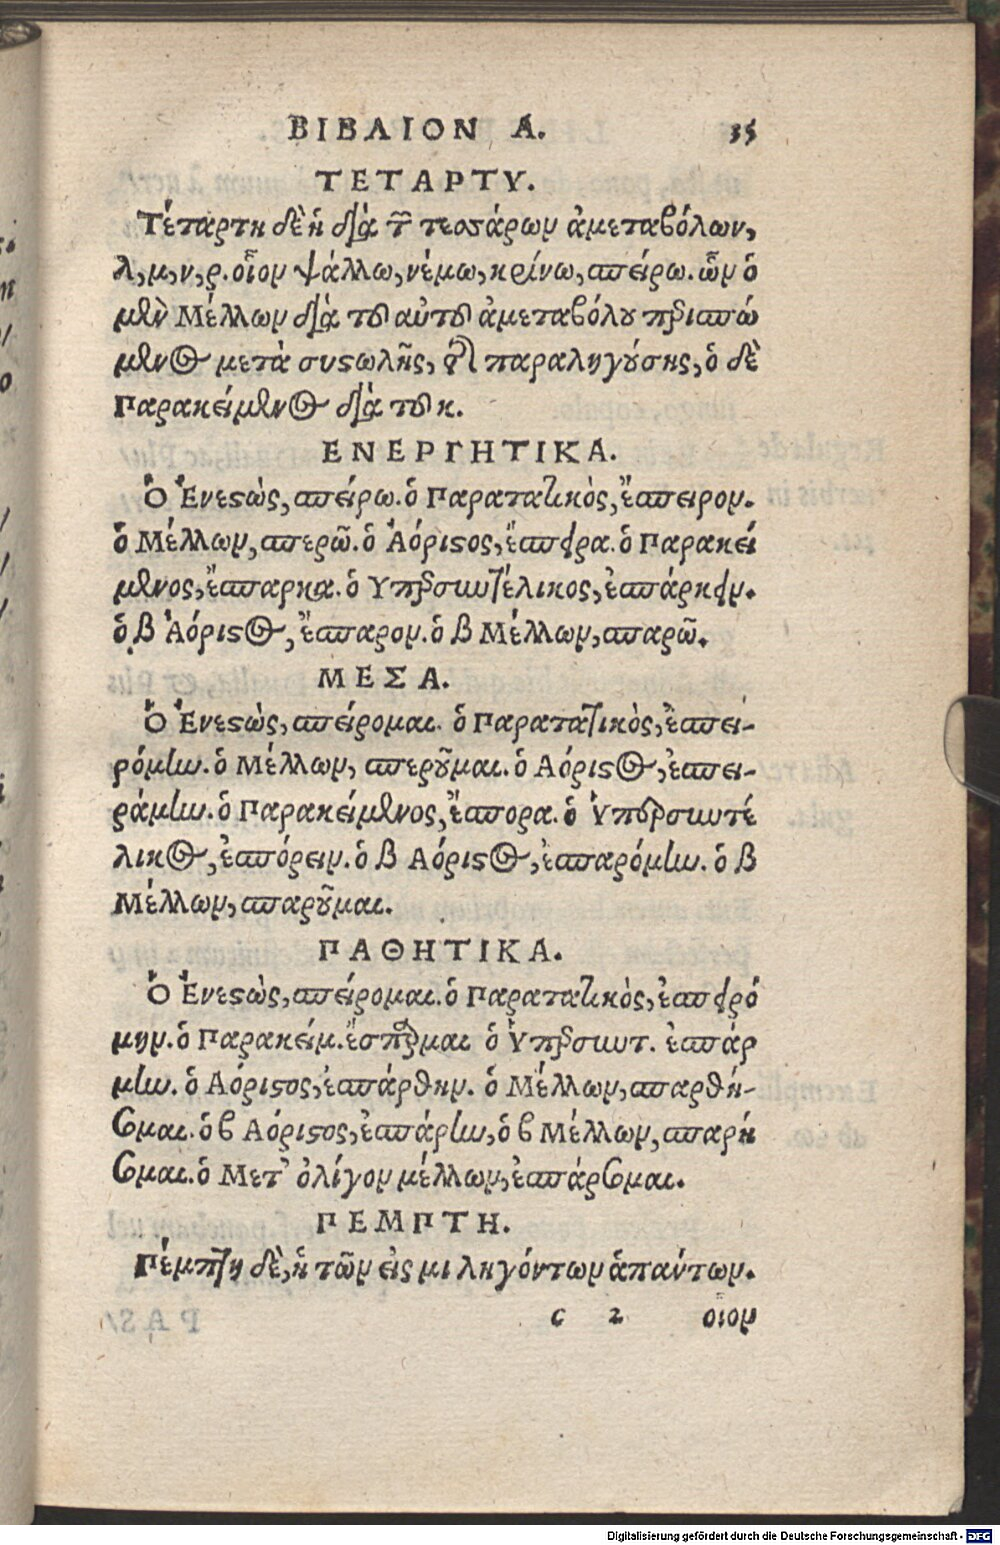 ΒΙΒΛΙΟΝ Α. 35
ΤΕΤΑΡΤΥ.
Τέταρτη δὲ ἡ διὰ τῶν τεσσάρων ἀμεταβόλων,
λ, μ, ν, ρ. οἷον ψάλλω, νέμω, κρίνω, σπείρω. ὧν ὁ
μὲν Μέλλων διὰ τοῦ αὐτοῦ ἀμεταβόλου περισπώ
μενος μετὰ συστολῆς, τῆς παραληγούσης, ὁ δὲ
Παρακείμενος διὰ τοῦ κ.
ΕΝΕΡΓΗΤΙΚΑ.
Ὁ Ἐνεστὼς, σπείρω. ὁ Παρατατικὸς, ἔσπειρον.
ὁ Μέλλων, σπερῶ. ὁ Ἀόριστος, ἔσπειρα. ὁ Παρακεί
μενος, ἔσπαρκα. ὁ Υπερσυντέλικος, ἐσπάρκειν.
ὁ β Ἀόριστος, ἔσπαρον. ὁ β Μέλλων, σπαρῶ.
ΜΕΣΑ.
Ὁ Ἐνεστὼς, σπείρομαι. ὁ Παρατατικὸς, ἐσπει-
ρόμην. ὁ Μέλλων, σπεροῦμαι. ὁ Αόριστος, ἐσπει-
ράμην. ὁ Παρακείμενος, ἔσπορα. ὁ Ὑπερσυντέ
λικος, ἐσπόρειν. ὁ β Αόριστος, ἐσπαρόμην. ὁ β
Μέλλων, σπαροῦμαι.
ΠΑΘΗΤΙΚΑ.
Ὁ Ἐνεστὼς, σπείρομαι. ὁ Παρατατικὸς, ἐσπειρό
μην. ὁ Παρακείμ. ἔσπαρμαι ὁ Ὑπερσυντ. ἐσπάρ
μην. ὁ Αόριστος, ἐσπάρθην. ὁ Μέλλων, σπαρθή-
σομαι. ὁ β Αόριστος, ἐσπάρην, ὁ β Μέλλων, σπαρή
σομαι. ὁ Μετ' ὀλίγον μέλλων, ἐσπάρσομαι.
ΠΕΜΠΤΗ.
Πέμπτη δὲ, ἡ τῶν εἰς μι ληγόντων ἁπάντων.
c 2 οἷον
Digitalisierung gefördert durch die Deutsche Forschungsgemeinschaft - DFG